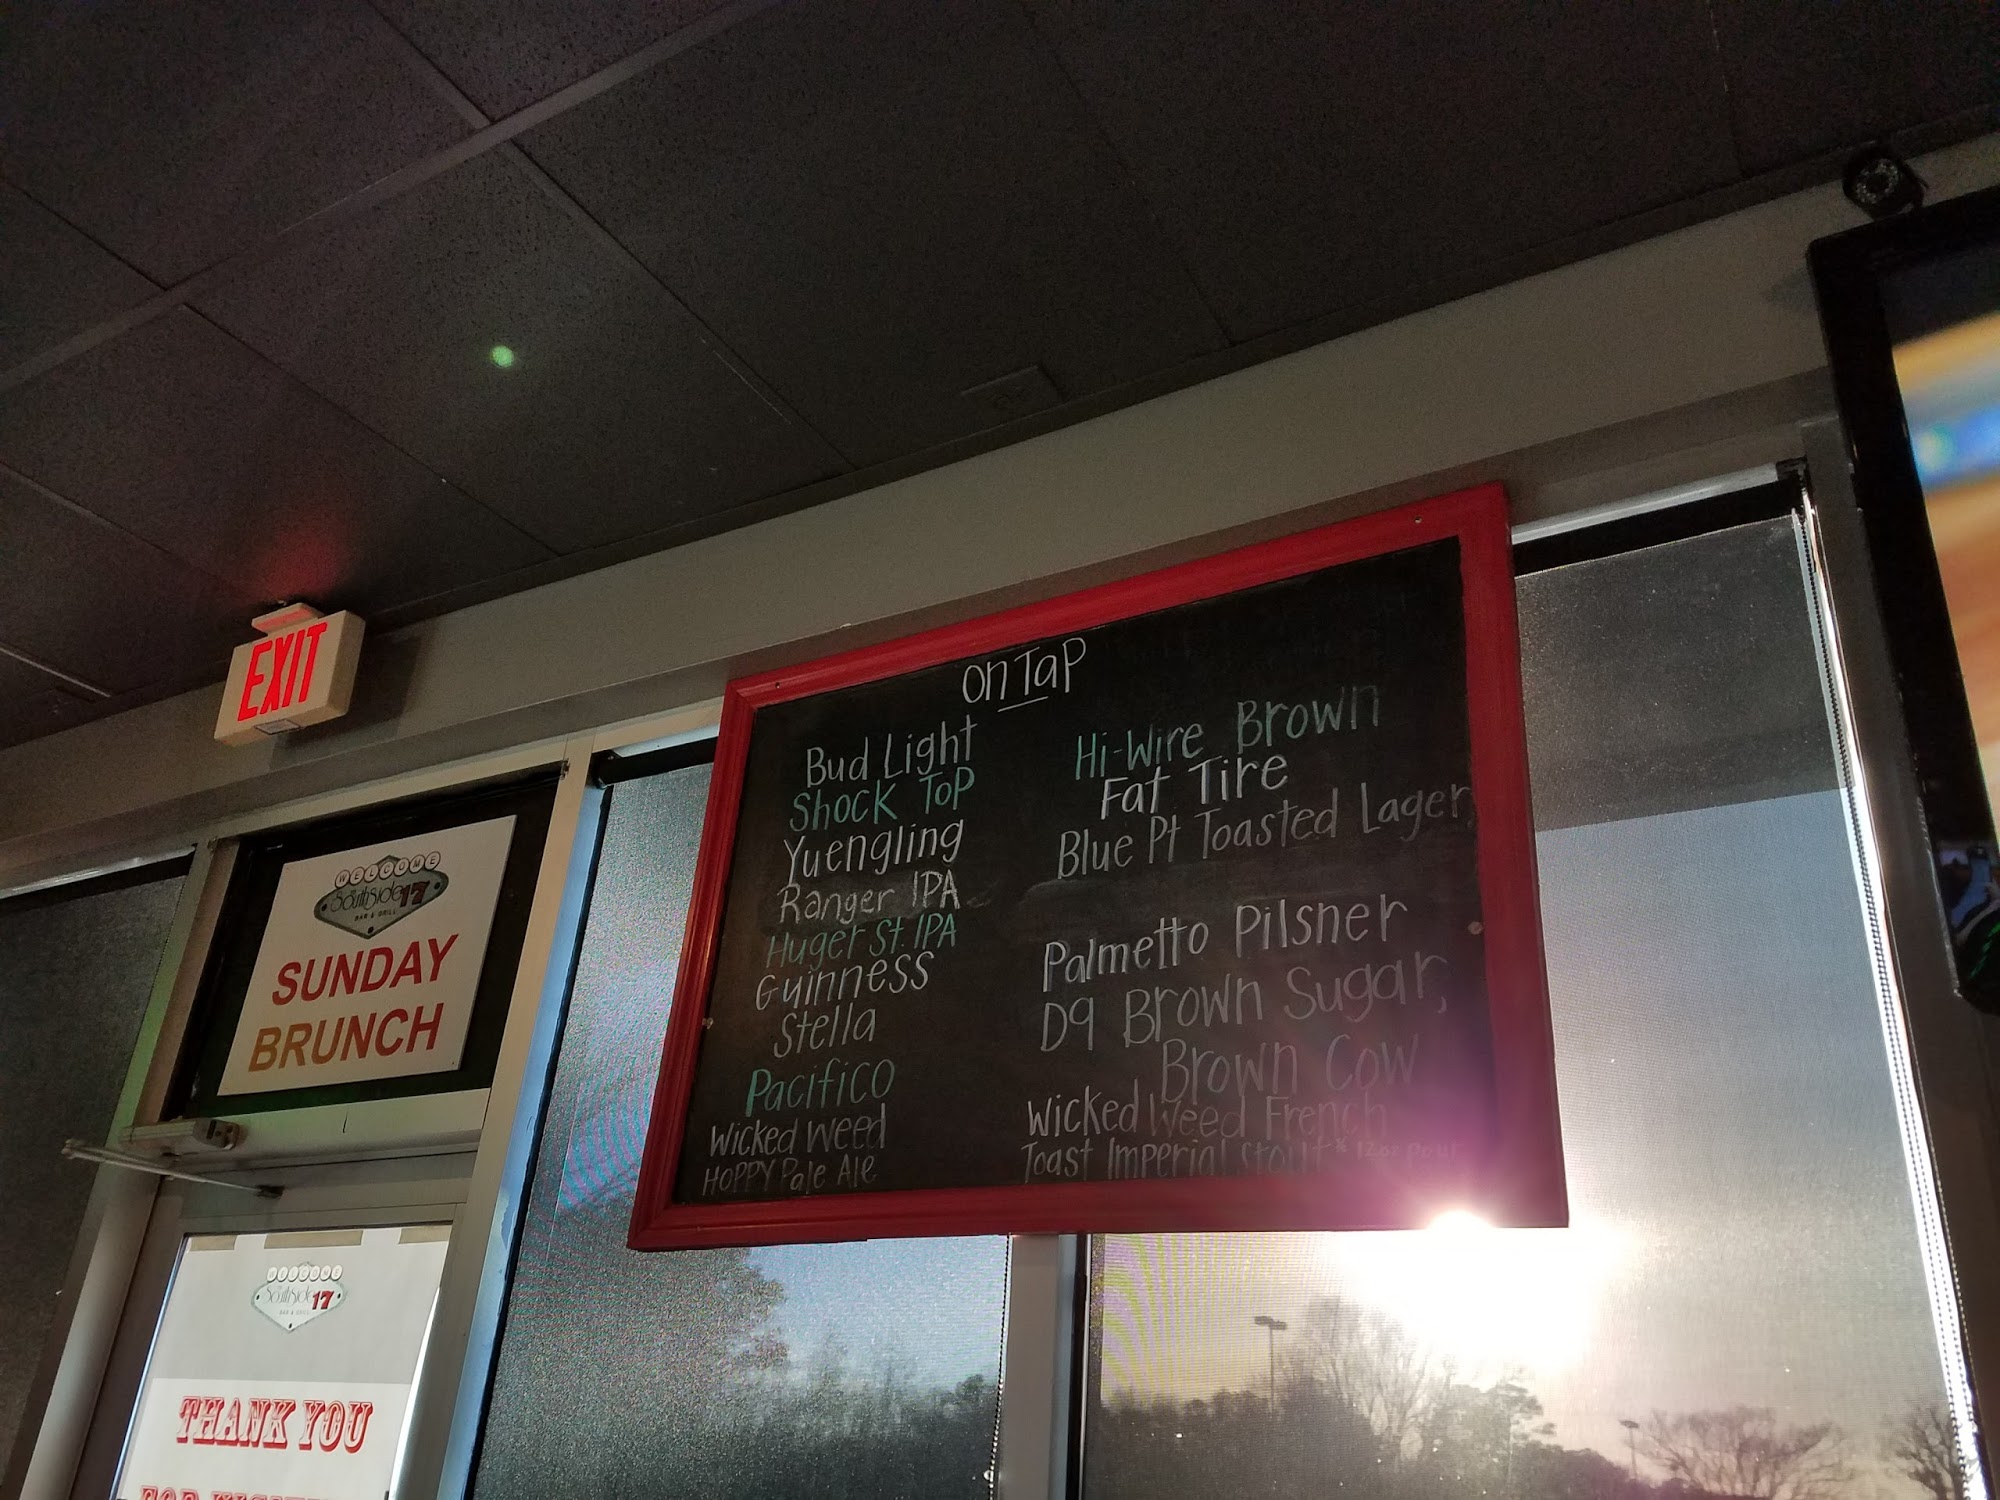 EXIT
WELCOME
Southside 17
BAR & GRILL
SUNDAY
BRUNCH
WELCOME
Southside 17
BAR & GRILL
THANK YOU
On Tap
Bud Light
Shock Top
Yuengling
Ranger IPA
Huger St. IPA
Guinness
Stella
Pacifico
Wicked Weed
Hoppy Pale Ale
Hi-Wire Brown
Fat Tire
Blue Pt Toasted Lager
Palmetto Pilsner
D9 Brown Sugar,
Brown Cow
Wicked Weed French
Toast Imperial Stout * 12oz pour